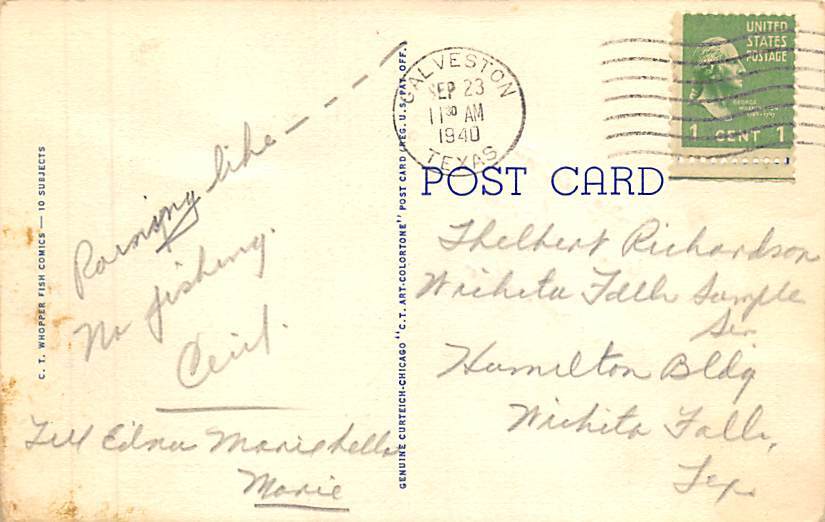 C. T. WHOPPER FISH COMICS — 10 SUBJECTS
Raining like – – – –
No fishing.
Cecil.
Tell Edna Marie hello
Marie
GENUINE CURTEICH-CHICAGO "C. T. ART-COLORTONE" POST CARD (REG. U. S. PAT. OFF.)
GALVESTON
SEP 23
11 30 AM
1940
TEXAS
UNITED
STATES
POSTAGE
GEORGE
WASHINGTON
1 CENT 1
POST CARD
Thelbert Richardson
Wichita Falls Sample
Ser
Hamilton Bldg
Wichita Falls,
Tex.